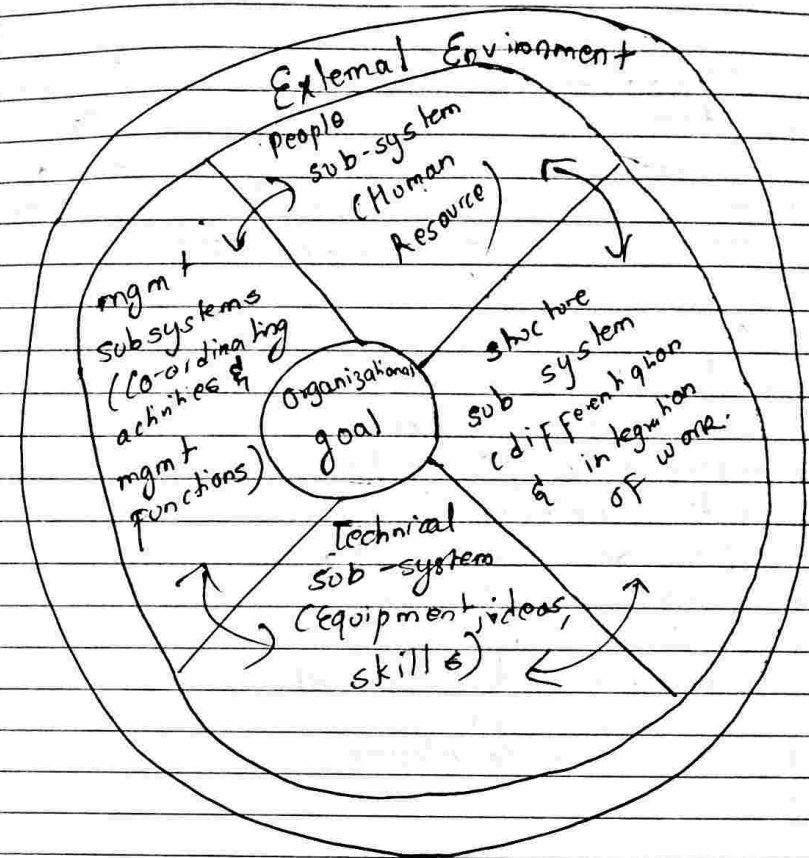 External Environment
people
sub-system
(Human
Resource)
mgmt
subsystems
(co-ordinating
activities &
mgmt
functions)
organizational
goal
structure
sub system
(differentiation
& integration
of work.
Technical
sub-system
(equipment, ideas,
skills)